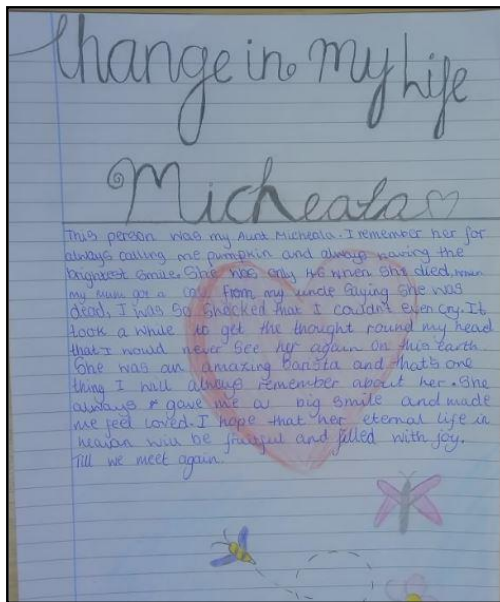 Change in my Life
Micheala
This person was my Aunt Micheala. I remember her for
always calling me pumpkin and always having the
brightest smile. She was only 46 when she died, when
my mum got a call from my uncle saying she was
dead, I was so shocked that I couldn't even cry. It
took a while to get the thought round my head
that I would never see her again on this earth.
She was an amazing barista and that's one
thing I will always remember about her. She
always gave me a big smile and made
me feel loved. I hope that her eternal life in
heavan will be fruitful and filled with joy.
Till we meet again.